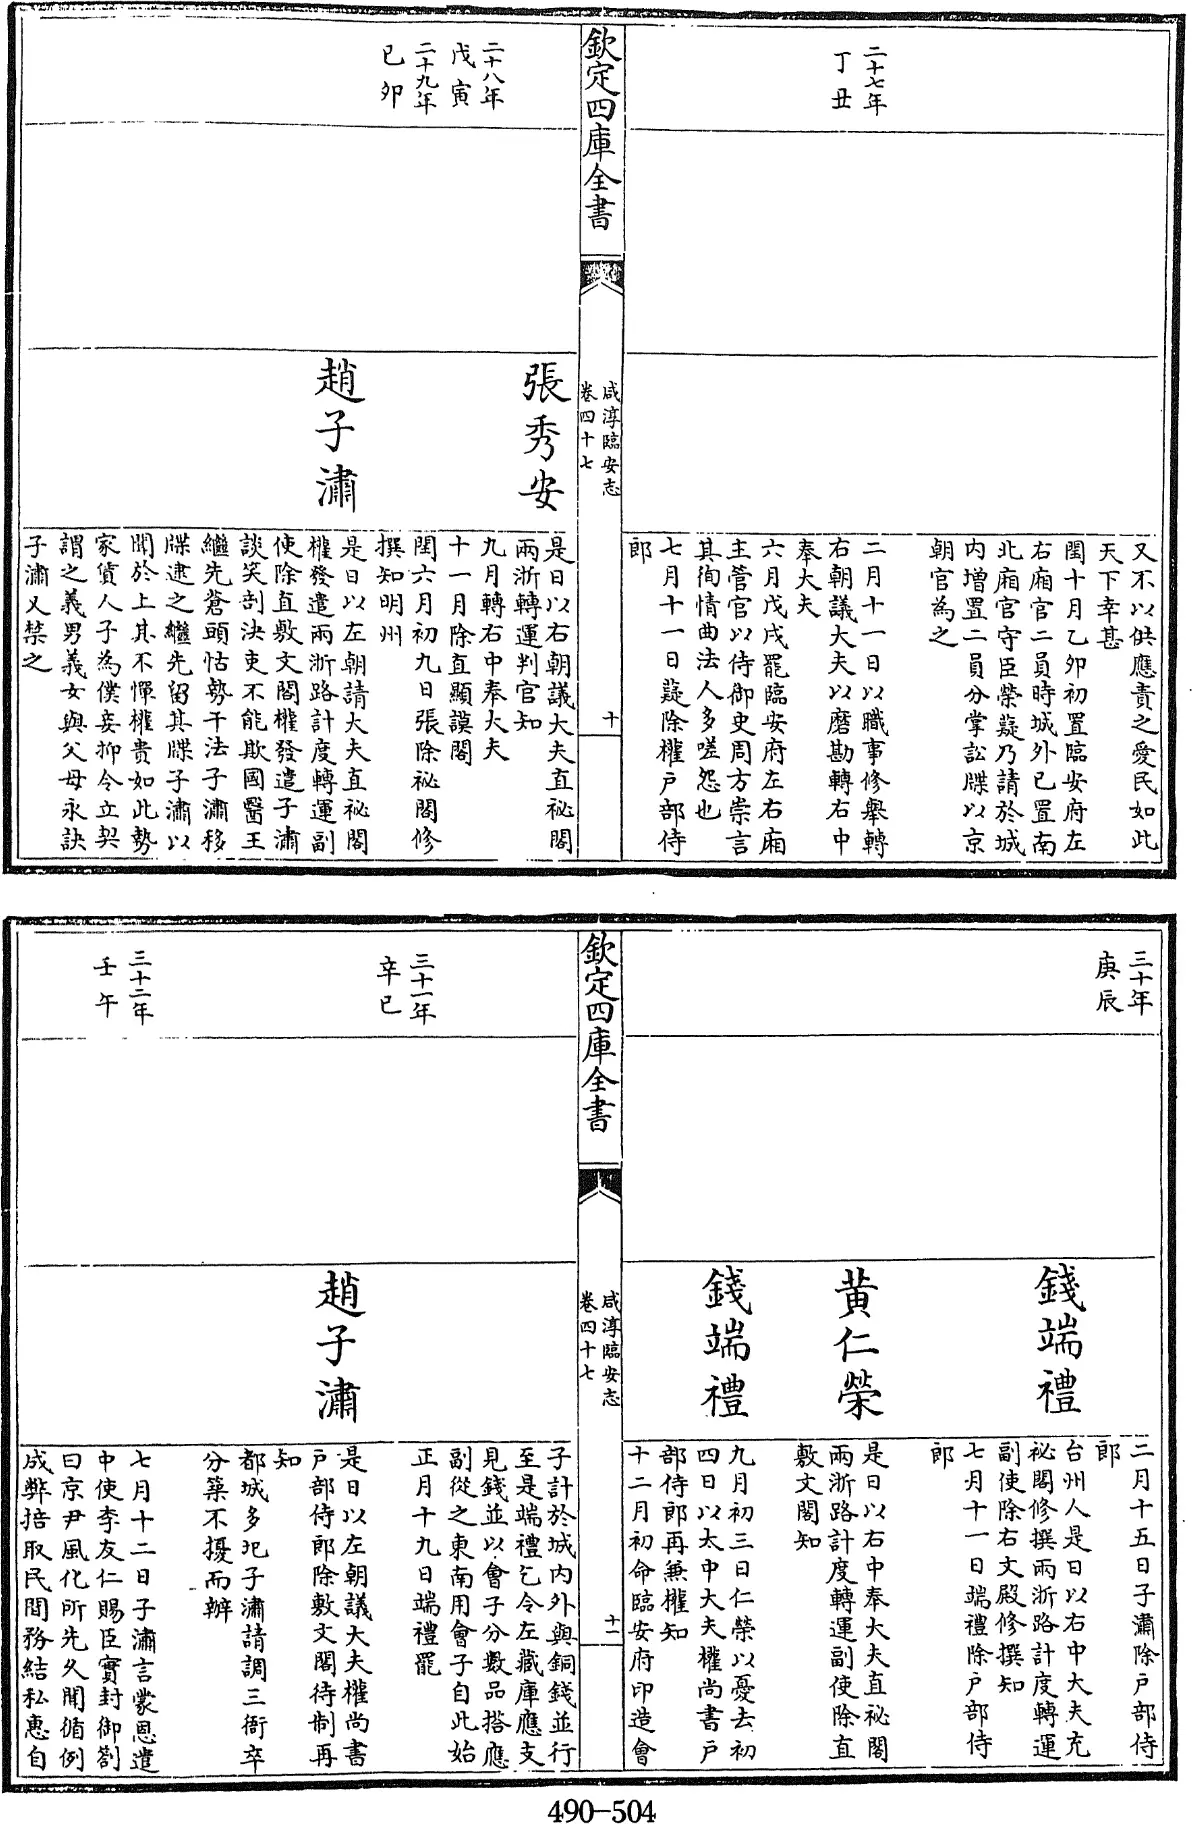 二十七年
丁丑
又不以供應責之愛民如此
天下幸甚
閏十月乙卯初置臨安府左
右廂官二員時城外已置南
北廂官守臣榮薿乃請於城
內增置二員分掌訟牒以京
朝官為之
二月十一日以職事修舉轉
右朝議大夫以磨勘轉右中
奉大夫
六月戊戌罷臨安府左右廂
主管官以侍御史周方崇言
其徇情曲法人多嗟怨也
七月十一日薿除權戶部侍
郎
欽定四庫全書
咸淳臨安志
卷四十七
十
二十八年
戊寅
二十九年
己卯
張秀安
趙子潚
是日以右朝議大夫直祕閣
兩浙轉運判官知
九月轉右中奉大夫
十一月除直顯謨閣
閏六月初九日張除祕閣修
撰知明州
是日以左朝請大夫直祕閣
權發遣兩浙路計度轉運副
使除直敷文閣權發遣子潚
談笑剖決吏不能欺國醫王
繼先蒼頭怙勢干法子潚移
牒逮之繼先留其牒子潚以
聞於上其不憚權貴如此勢
家貸人子為僕妾抑令立契
謂之義男義女與父母永訣
子潚乂禁之
三十年
庚辰
錢端禮
黃仁榮
錢端禮
二月十五日子潚除戶部侍
郎
台州人是日以右中大夫充
祕閣修撰兩浙路計度轉運
副使除右文殿修撰知
七月十一日端禮除戶部侍
郎
是日以右中奉大夫直祕閣
兩浙路計度轉運副使除直
敷文閣知
九月初三日仁榮以憂去初
四日以太中大夫權尚書戶
部侍郎再兼權知
十二月初命臨安府印造會
欽定四庫全書
咸淳臨安志
卷四十七
十一
三十一年
辛巳
三十二年
壬午
趙子潚
子計於城內外與銅錢並行
至是端禮乞令左藏庫應支
見錢並以會子分數品搭應
副從之東南用會子自此始
正月十九日端禮罷
是日以左朝議大夫權尚書
戶部侍郎除敷文閣待制再
知
都城多圯子潚請調三衙卒
分築不擾而辦
七月十二日子潚言蒙恩遣
中使李友仁賜臣實封御劄
曰京尹風化所先久聞循例
成弊掊取民間務結私惠自
490-504